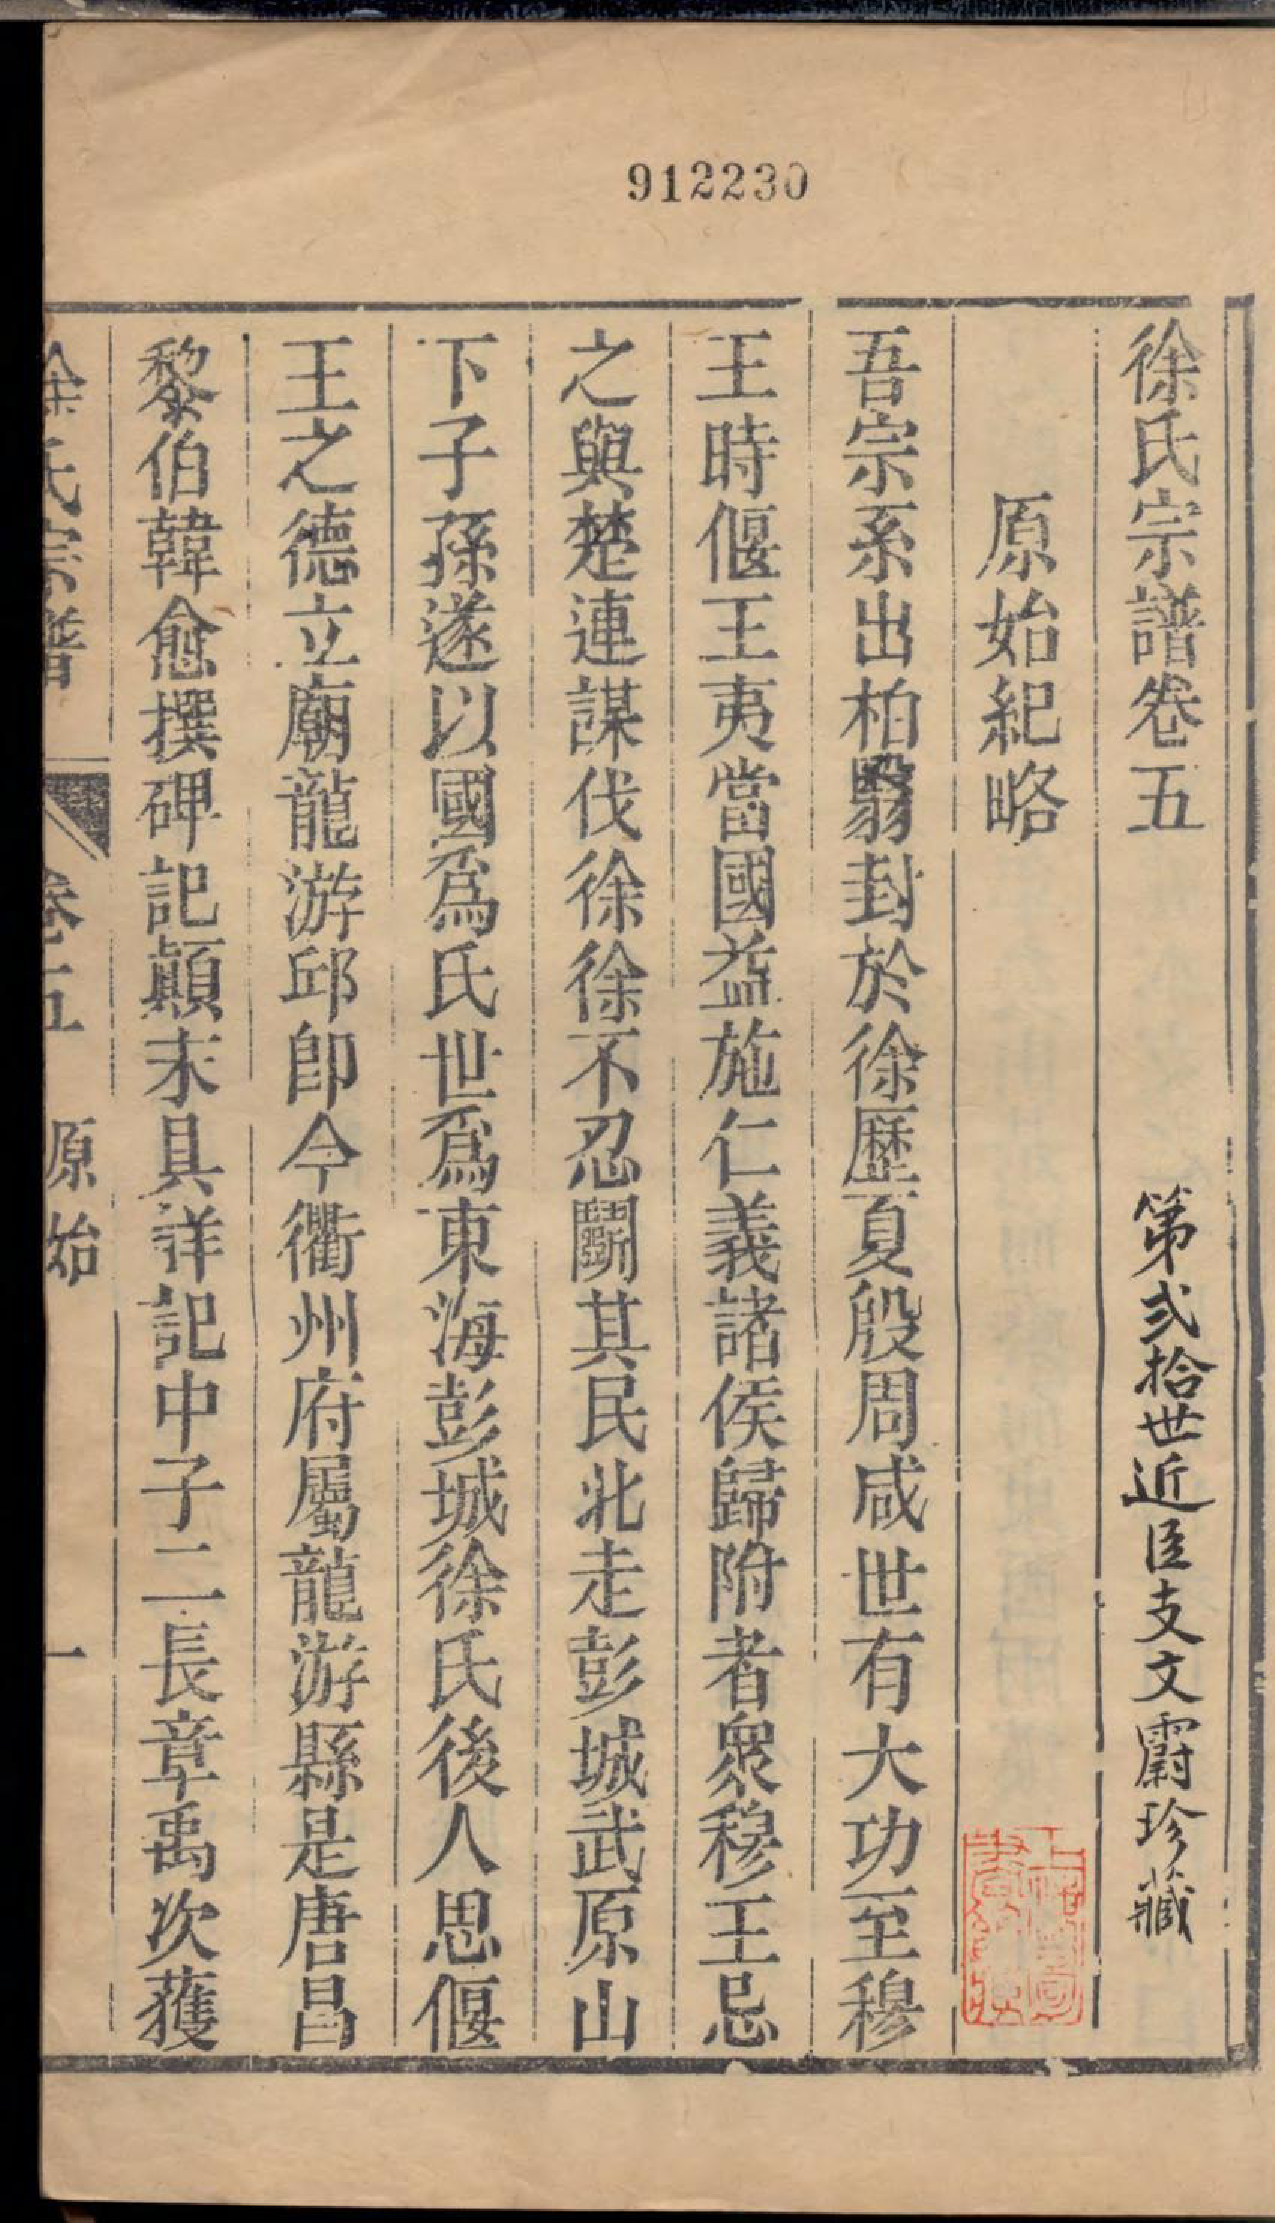 912230
徐氏宗譜卷五
第弍拾世近臣支文霨珍藏
原始紀略
吾宗系出柏翳封於徐歷夏殷周咸世有大功至穆
王時偃王王夷當國益施仁義諸侯歸附者衆穆王忌
之與楚連謀伐徐徐不忍鬬其民北走彭城武原山
下子孫遂以國爲氏世爲東海彭城徐氏後人思偃
王之德立廟龍游邱卽今衢州府屬龍游縣是唐昌
黎伯韓愈撰碑記顛末具詳記中子二長章禹次獲
徐氏宗譜
卷五
原始
一